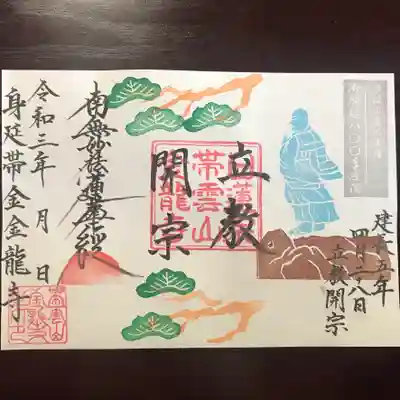 建長五年
四月二十八日
立教開宗
立教
開宗
帯雲山
南無妙法蓮華経
令和三年 月 日
身延帯金金龍寺